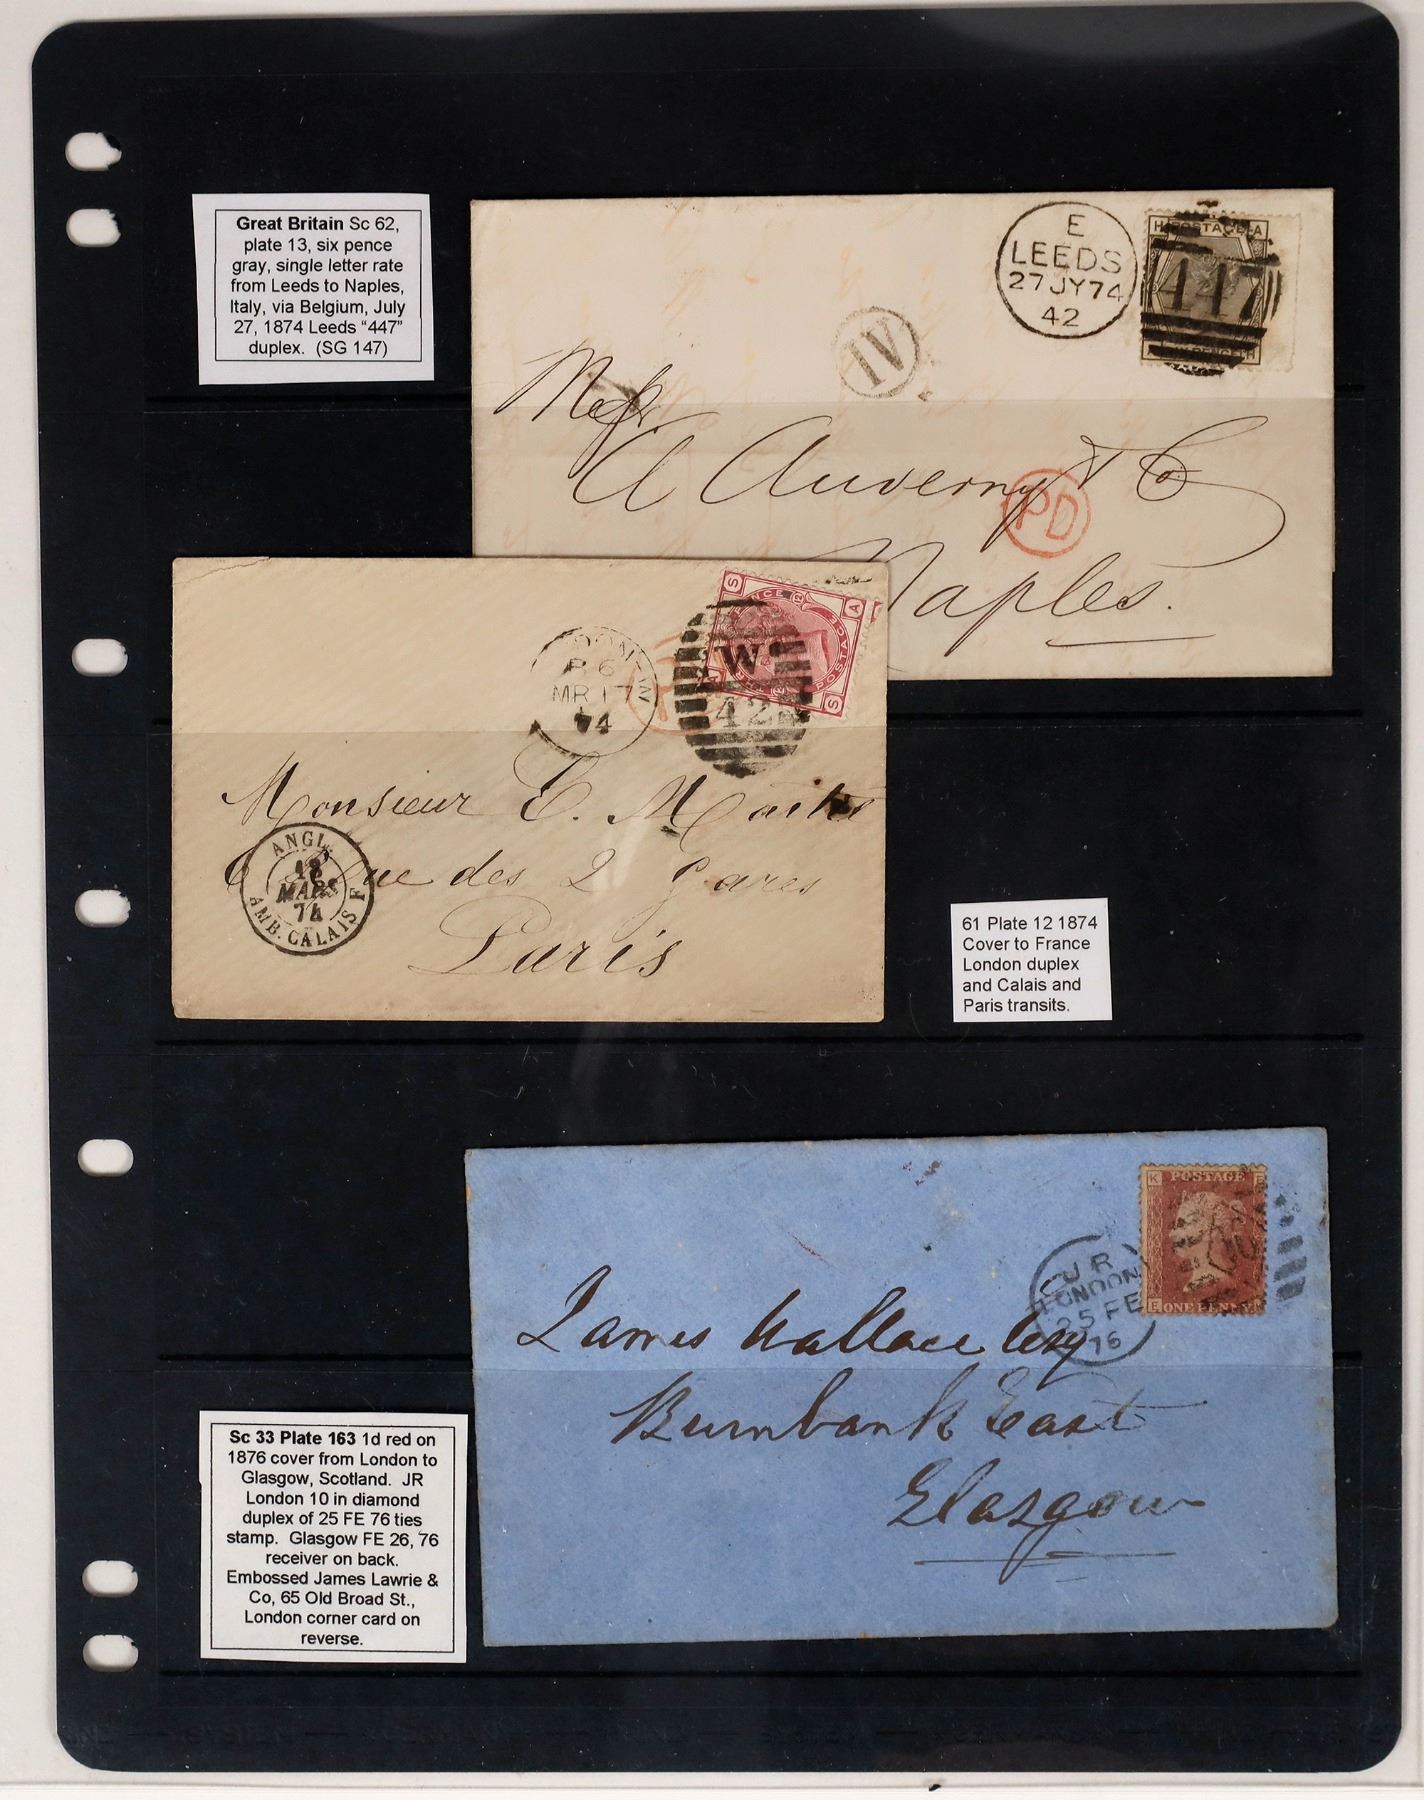 Great Britain Sc 62,
plate 13, six pence
gray, single letter rate
from Leeds to Naples,
Italy, via Belgium, July
27, 1874 Leeds “447”
duplex. (SG 147)
E
LEEDS
27 JY 74
42
H POSTAGE A
447
IV
Messrs
A Auverny & Co
PD
Naples.
MR 17
74
W
42
S A
POSTAGE
S
Monsieur E.
Rue des 2 Gares
Paris
ANGL.
18
MARS
74
AMB. CALAIS F
61 Plate 12 1874
Cover to France
London duplex
and Calais and
Paris transits.
K POSTAGE E
10
E ONE PENNY
J R
LONDON
25 FE
76
James Wallace Esq
Burnbank East
Glasgow
Sc 33 Plate 163 1d red on
1876 cover from London to
Glasgow, Scotland. JR
London 10 in diamond
duplex of 25 FE 76 ties
stamp. Glasgow FE 26, 76
receiver on back.
Embossed James Lawrie &
Co, 65 Old Broad St.,
London corner card on
reverse.